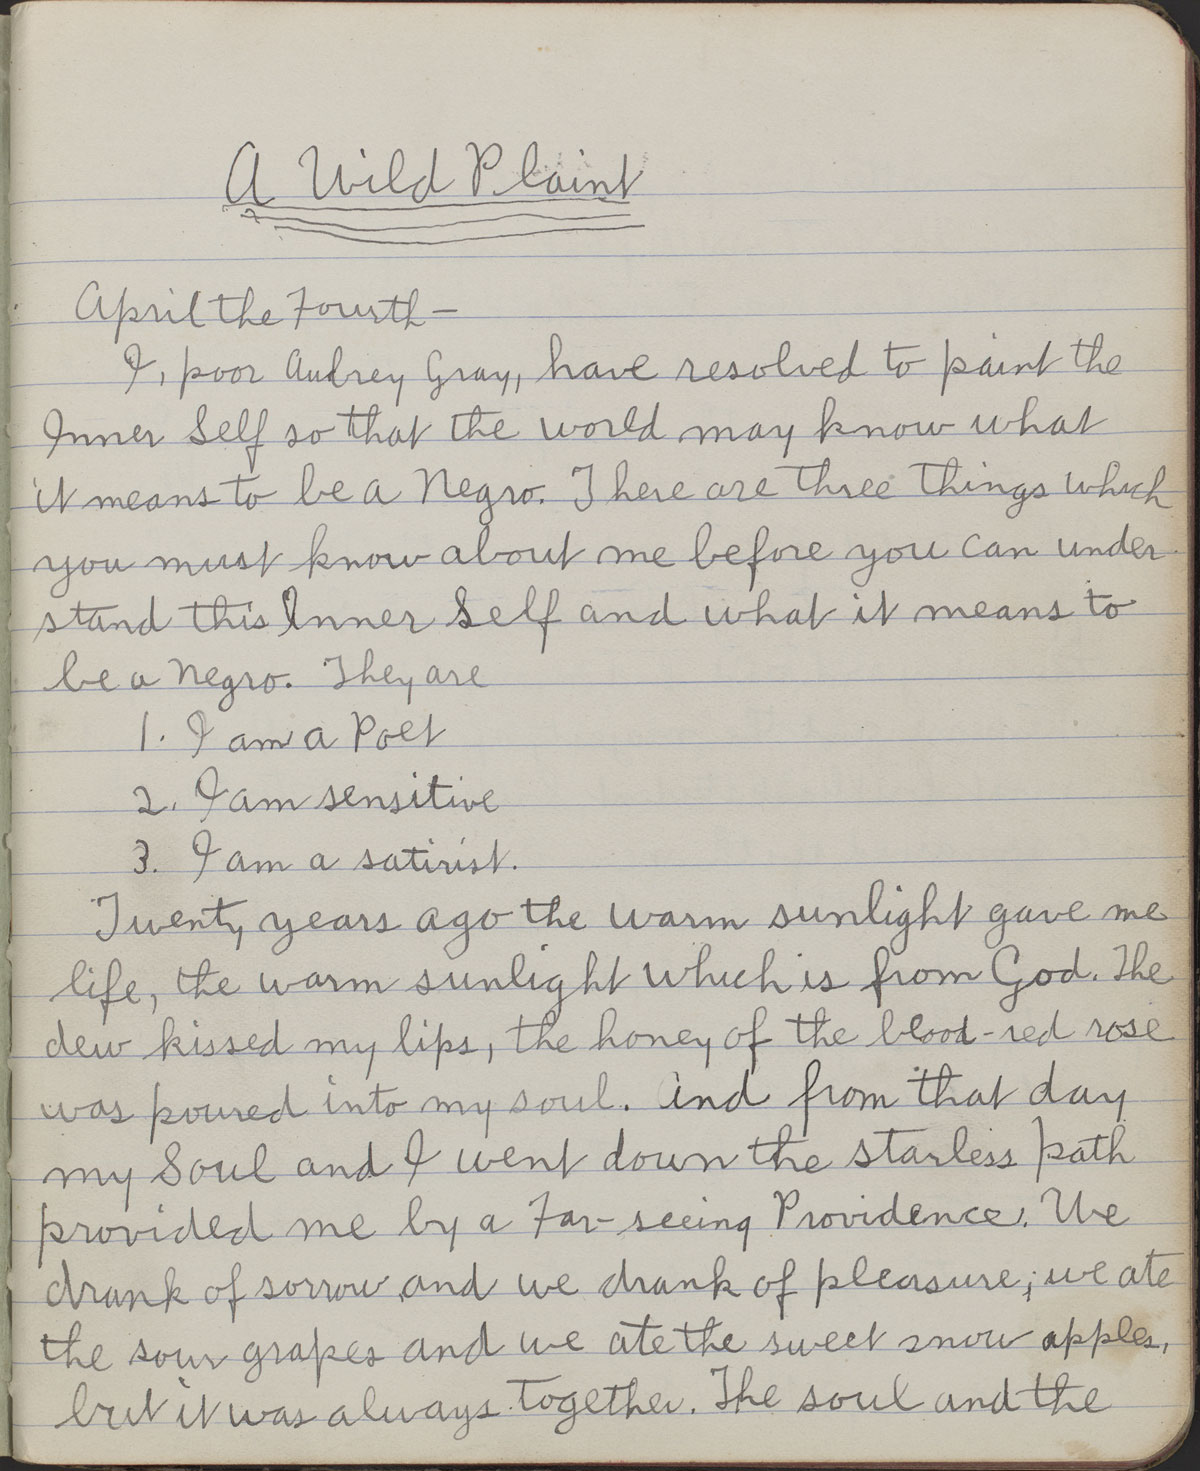 A Wild Plaint
April the Fourth—
I, poor Audrey Gray, have resolved to paint the
Inner Self so that the world may know what
it means to be a Negro. There are three things which
you must know about me before you can under-
stand this Inner Self and what it means to
be a Negro. They are
1. I am a Poet
2. I am sensitive
3. I am a satirist.
Twenty years ago the warm sunlight gave me
life, the warm sunlight which is from God. The
dew kissed my lips, the honey of the blood-red rose
was poured into my soul. And from that day
my Soul and I went down the starless path
provided me by a Far-seeing Providence. We
drank of sorrow and we drank of pleasure; we ate
the sour grapes and we ate the sweet snow apples,
but it was always together. The soul and the